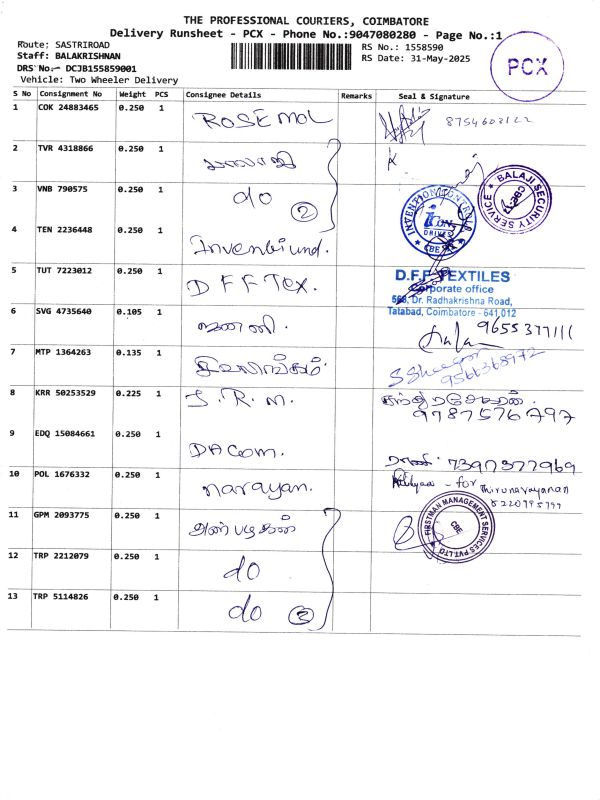 THE PROFESSIONAL COURIERS, COIMBATORE
Delivery Runsheet - PCX - Phone No.:9047080280 - Page No.:1
Route: SASTRIROAD
RS No.: 1558590
Staff: BALAKRISHNAN
RS Date: 31-May-2025
DRS No.- DCJB155859001
Vehicle: Two Wheeler Delivery
PCX
S No Consignment No Weight PCS Consignee Details Remarks Seal & Signature
1 COK 24883465 0.250 1 ROSE MOL 8754603122
2 TVR 4318866 0.250 1 பாலாஜி
3 VNB 790575 0.250 1 do 2
INVENTION CONTROLS
iCON
DRIVES
CBE
BALAJI SECURITY SERVICE
CBE-12
4 TEN 2236448 0.250 1
5 TUT 7223012 0.250 1 DFF Tex.
D.F.F TEXTILES
Corporate office
Dr. Radhakrishna Road,
Tatabad, Coimbatore - 641 012
6 SVG 4735640 0.105 1 ஜனனி. 9655377111
7 MTP 1364263 0.135 1 சிவலிங்கம் 9566368972
8 KRR 50253529 0.225 1 S.R.M. சந்திரசேகரன்.
9787576797
9 EDQ 15084661 0.250 1 DACOM. 7397377969
10 POL 1676332 0.250 1 narayan. - for Thirunarayanan
8220795777
11 GPM 2093775 0.250 1 அன்பழகன்
FIRSTMAN MANAGEMENT SERVICES PVT.LTD
CBE
12 TRP 2212079 0.250 1 do
13 TRP 5114826 0.250 1 do 3